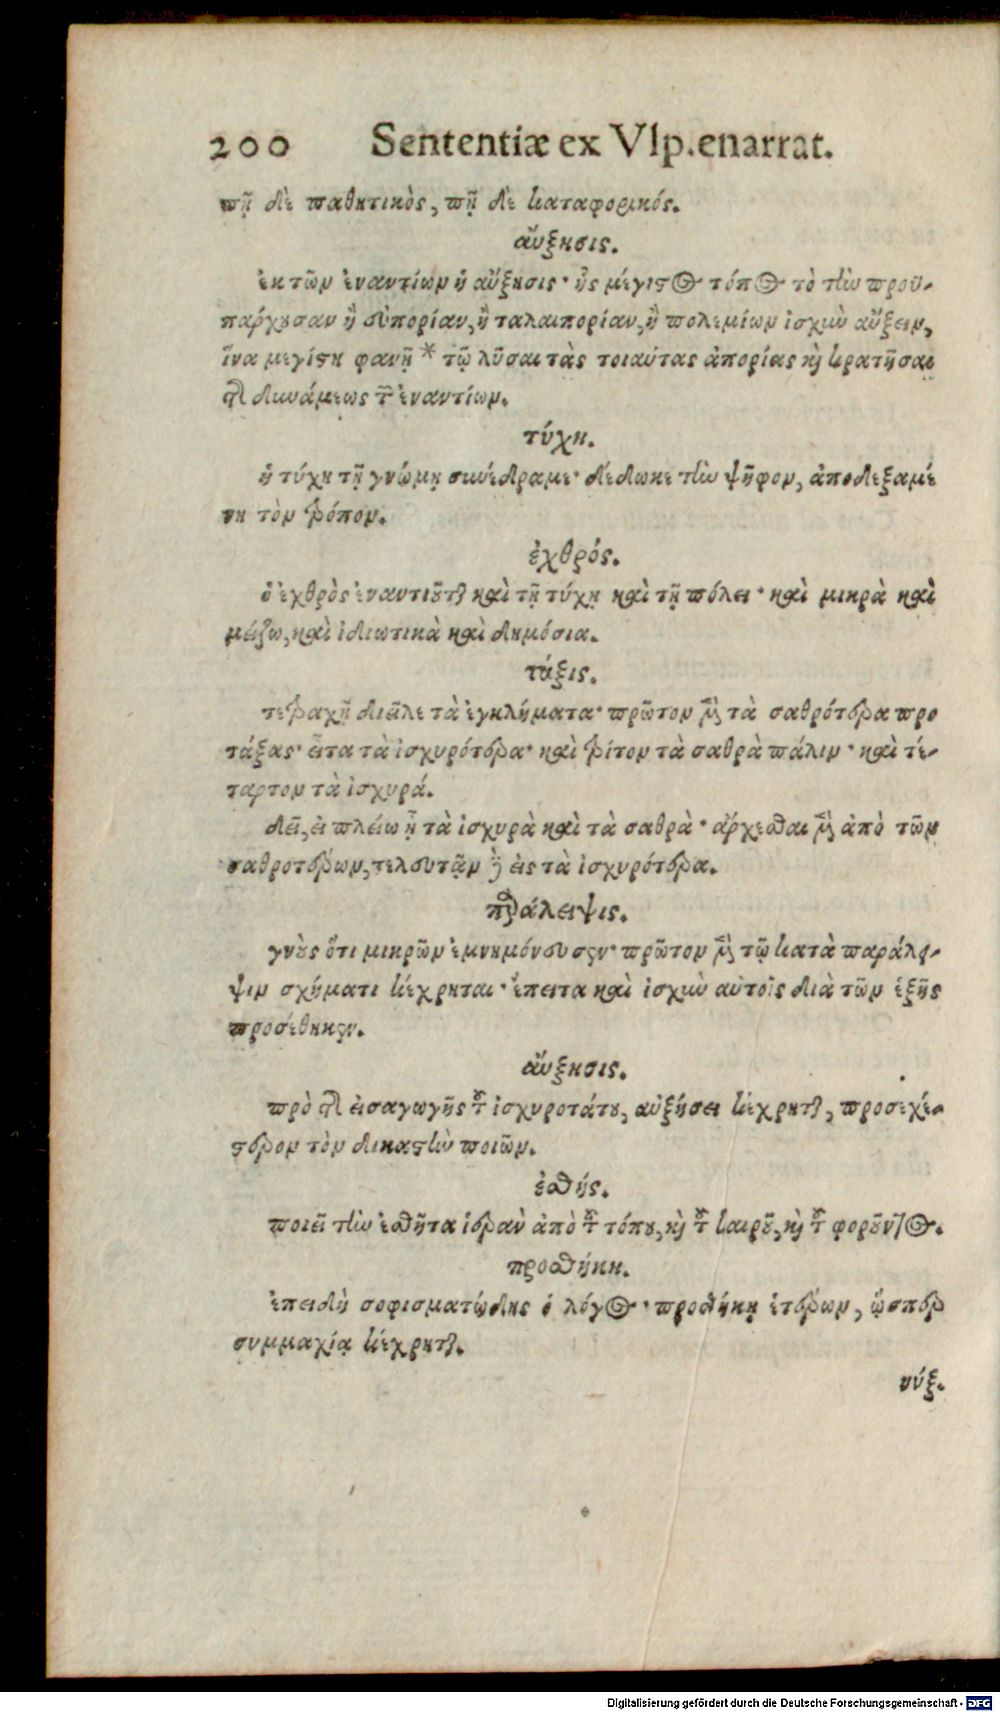 200 Sententiæ ex Vlp. enarrat.
πῇ δὲ παθητικὸς, πῇ δὲ καταφορικός.
αὔξησις.
ἐκ τῶν ἐναντίων ἡ αὔξησις· ἧς μέγιστος τόπος τὸ τὴν προϋ-
πάρχουσαν ἢ εὐπορίαν, ἢ ταλαιπορίαν, ἢ πολεμίων ἰσχὺν αὔξειν,
ἵνα μεγίστη φανῇ * τῷ λῦσαι τὰς τοιαύτας ἀπορίας καὶ κρατῆσαι
τῆς δυνάμεως τῶν ἐναντίων.
τύχη.
ἡ τύχη τῇ γνώμῃ συνέδραμε· δέδωκε τὴν ψῆφον, ἀποδεξαμέ
νη τὸν τρόπον.
ἐχθρός.
ὁ ἐχθρὸς ἐναντιοῦται καὶ τῇ τύχῃ καὶ τῇ πόλει· καὶ μικρὰ καὶ
μείζω, καὶ ἰδιωτικὰ καὶ δημόσια.
τάξις.
τετραχῇ διεῖλε τὰ ἐγκλήματα· πρῶτον μὲν τὰ σαθρότερα προ
τάξας· εἶτα τὰ ἰσχυρότερα· καὶ τρίτον τὰ σαθρὰ πάλιν· καὶ τέ-
ταρτον τὰ ἰσχυρά.
δεῖ, εἰ πλείω ᾖ τὰ ἰσχυρὰ καὶ τὰ σαθρὰ· ἄρχεσθαι μὲν ἀπὸ τῶν
σαθροτέρων, τελευτᾷν δὲ εἰς τὰ ἰσχυρότερα.
παράλειψις.
γνοὺς ὅτι μικρῶν ἐμνημόνευσεν· πρῶτον μὲν τῷ κατὰ παράλει-
ψιν σχήματι κέχρηται· ἔπειτα καὶ ἰσχὺν αὐτοῖς διὰ τῶν ἑξῆς
προσέθηκεν.
αὔξησις.
πρὸ τῆς εἰσαγωγῆς τοῦ ἰσχυροτάτου, αὐξήσει κέχρηται, προσεχέ-
στερον τὸν δικαστὴν ποιῶν.
ἐσθής.
ποιεῖ τὴν ἐσθῆτα ἱερὰν ἀπὸ τοῦ τόπου, καὶ τοῦ καιροῦ, καὶ τοῦ φοροῦντος.
προσθήκη.
ἐπειδὴ σοφισματώδης ὁ λόγος· προσθήκῃ ἑτέρων, ὥσπερ
συμμαχίᾳ κέχρηται.
νύξ.
Digitalisierung gefördert durch die Deutsche Forschungsgemeinschaft - DFG